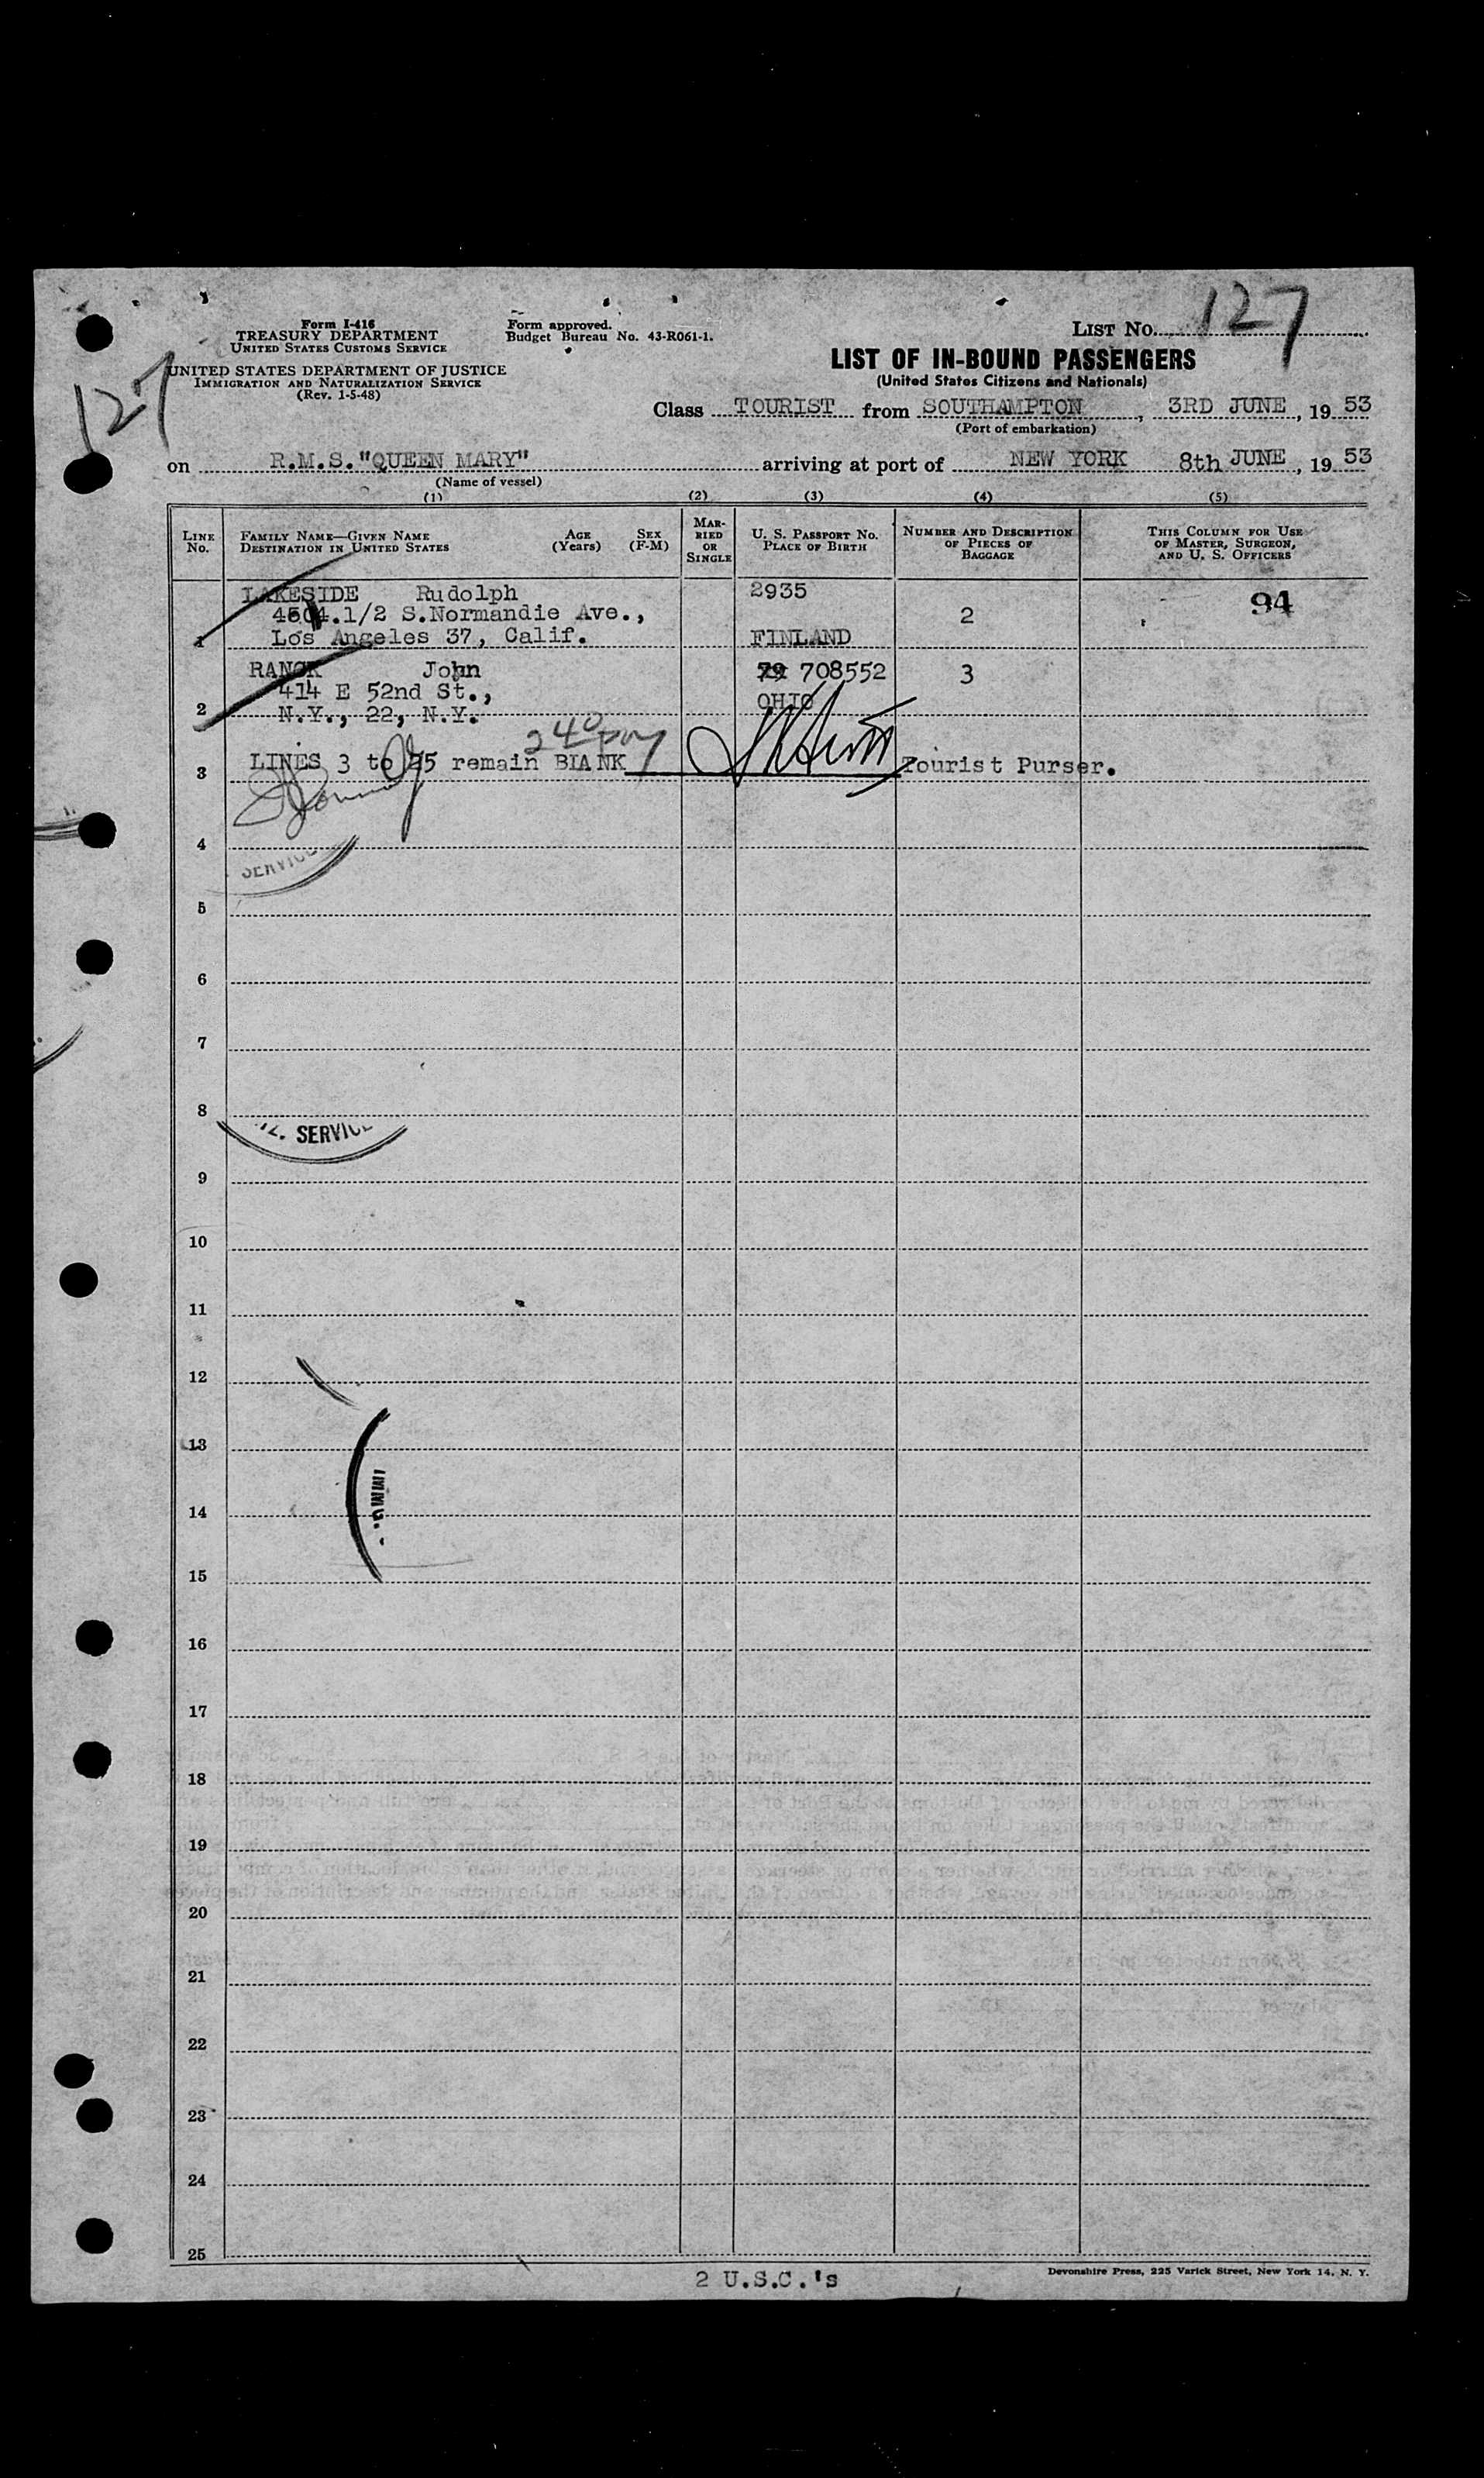 Form I-416
TREASURY DEPARTMENT
UNITED STATES CUSTOMS SERVICE
UNITED STATES DEPARTMENT OF JUSTICE
IMMIGRATION AND NATURALIZATION SERVICE
(Rev. 1-5-48)
Form approved.
Budget Bureau No. 43-R061-1.
LIST No. 127
127
LIST OF IN-BOUND PASSENGERS
(United States Citizens and Nationals)
Class TOURIST from SOUTHAMPTON, 3RD JUNE, 19 53
(Port of embarkation)
on R.M.S."QUEEN MARY" arriving at port of NEW YORK 8th JUNE, 19 53
(Name of vessel)
(1) (2) (3) (4) (5)
LINE No.
FAMILY NAME—GIVEN NAME
DESTINATION IN UNITED STATES
AGE (Years)
SEX (F-M)
MARRIED OR SINGLE
U. S. PASSPORT NO.
PLACE OF BIRTH
NUMBER AND DESCRIPTION OF PIECES OF BAGGAGE
THIS COLUMN FOR USE OF MASTER, SURGEON, AND U. S. OFFICERS
LAKESIDE Rudolph 2935
4504.1/2 S.Normandie Ave., 2 94
1 Los Angeles 37, Calif. FINLAND
RANCK John 79 708552 3
414 E 52nd St., OHIO
2 N.Y., 22, N.Y.
240 pm
3 LINES 3 to 25 remain BLANK Tourist Purser.
4
SERVICE
5
6
7
8
Z. SERVICE
9
10
11
12
13
IMMIG.
14
15
16
17
18
19
20
21
22
23
24
25
2 U.S.C.'s
Devonshire Press, 225 Varick Street, New York 14, N. Y.